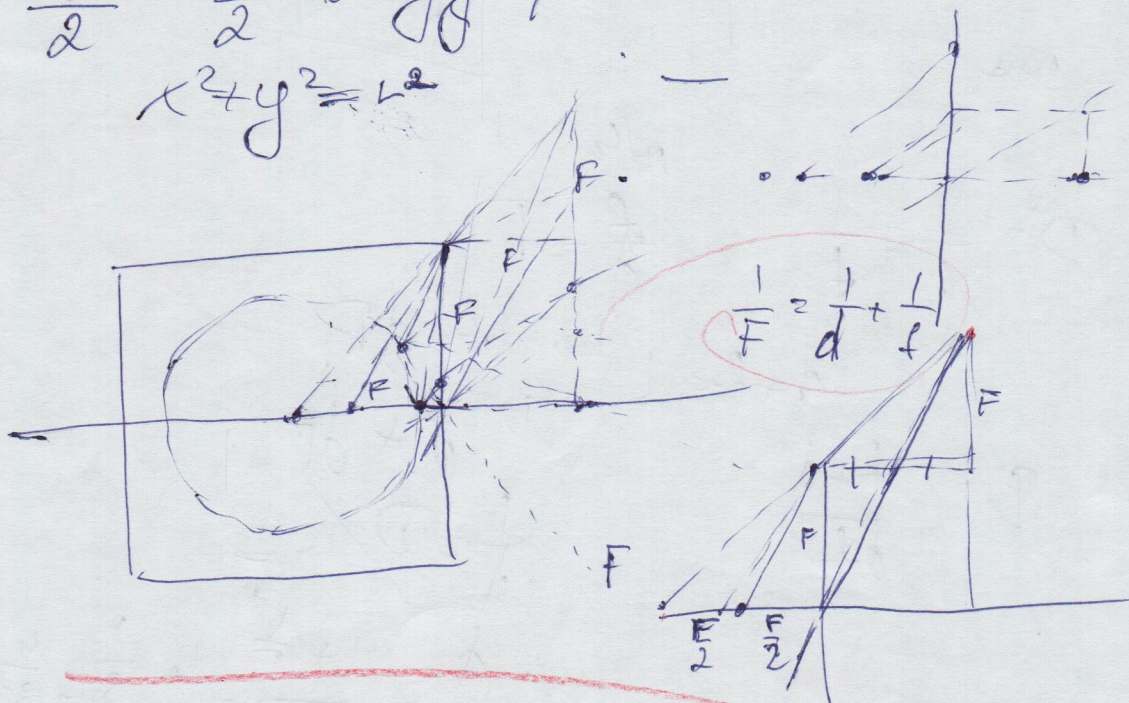 2 2
x²+y²=r²
F
F
F
F
1/F = 1/d + 1/f
F
F
F
F/2 F/2